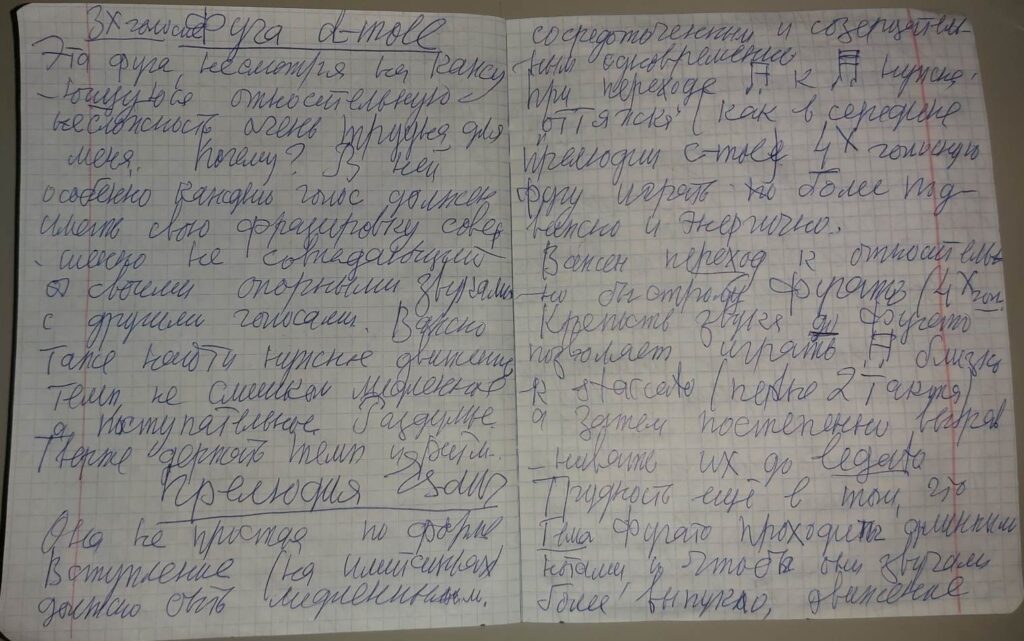 3х-голосная Фуга d-moll
Эта фуга, несмотря на кажу
-щуюся относительную
несложность очень трудна для
меня. Почему? В ней
особенно каждый голос должен
иметь свою фразировку совер
-шенно не совпадающий
со своими опорными звуками
с другими голосами. Важно
также найти нужное движение
темп не слишком медленное
а поступательное раздумье.
Тверже держать темп и ритм.
Прелюдия Es dur
Она не простая по форме
Вступление (на имитациях)
должно быть медленным.
сосредоточенным и созерцатель-
-ным одновременно
При переходе ♫ к нужна
оттяжка (как в середине
прелюдии c-moll) 4х голосную
фугу играть но более под-
важно и энергично.
Важен переход к относитель-
-но быстрому фугато (4х гол.
Крепость звука до фугато
позволяет играть ♫ близко
к staccato (первые 2 такта)
а затем постепенно выграв
-нивать их до legato
Трудность ещё в том, что
Тема фугато проходит длинными
нотами, и чтобы они звучали
более выпукло, движение